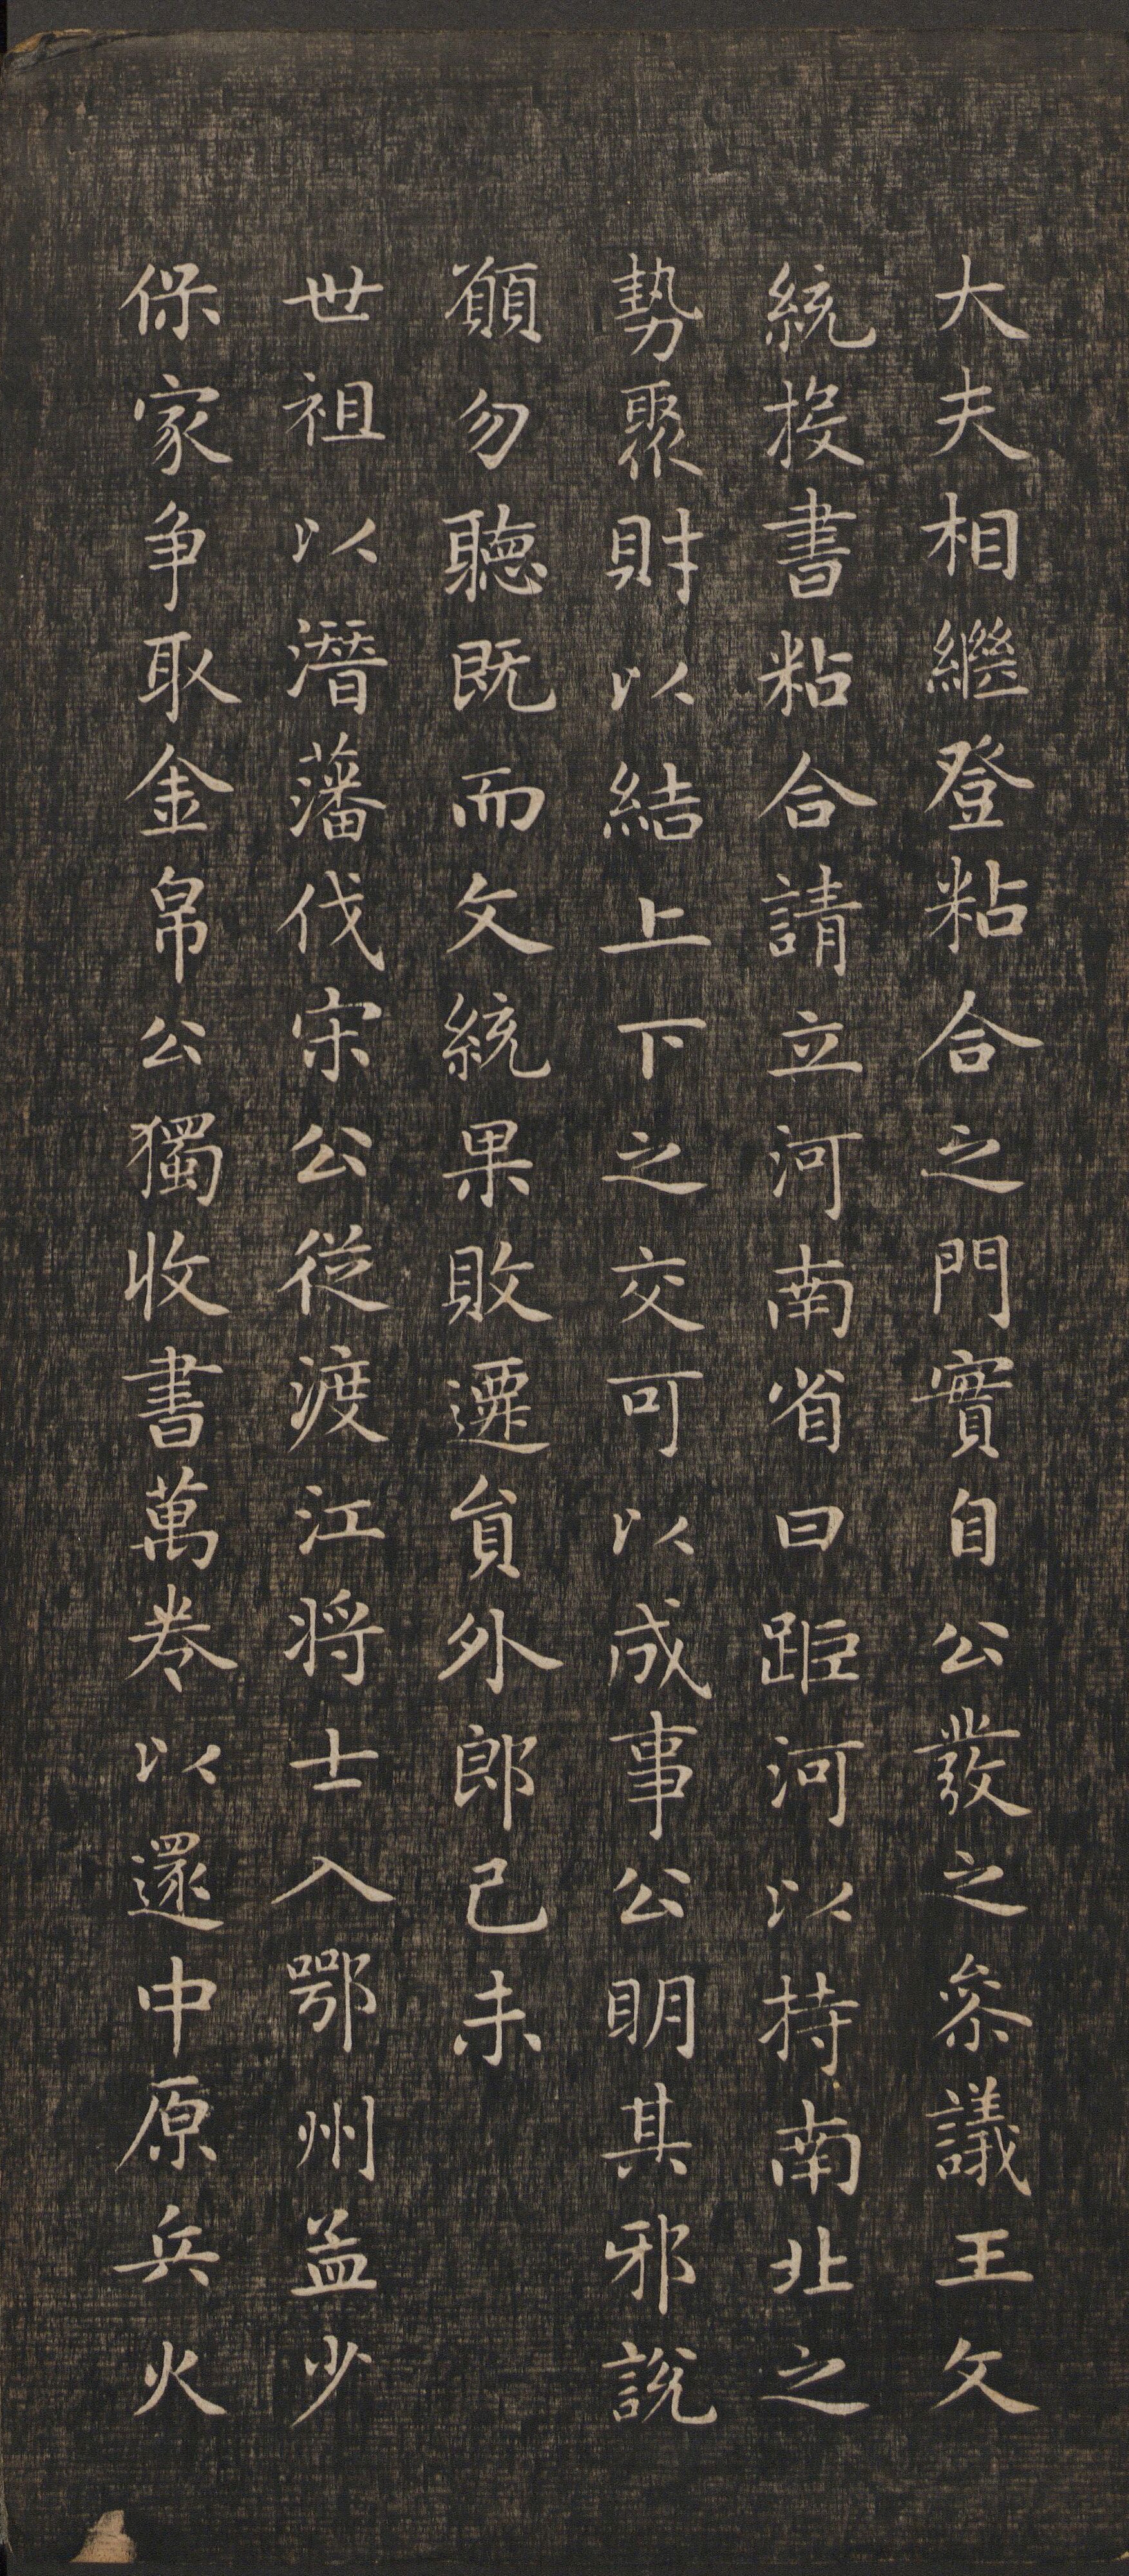 大夫相繼登粘合之門實自公發之參議王文
統投書粘合請立河南省曰距河以持南北之
勢聚財以結上下之交可以成事公明其邪說
願勿聽既而文統果敗遷負外郎己未
世祖以潛藩伐宋公從渡江将士入鄂州孟少
保家争取金帛公獨收書萬卷以還中原兵火